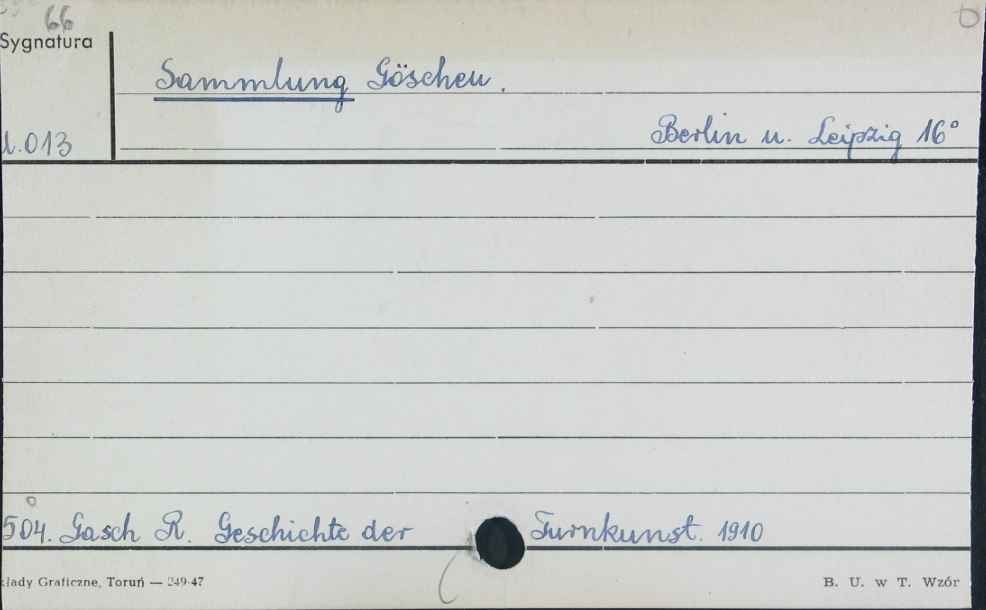 66
Sygnatura
Sammlung Göschen.
Berlin u. Leipzig 16°
1.013
504. Gasch R. Geschichte der Turnkunst. 1910
kłady Graficzne, Toruń — 249-47
B. U. w T. Wzór